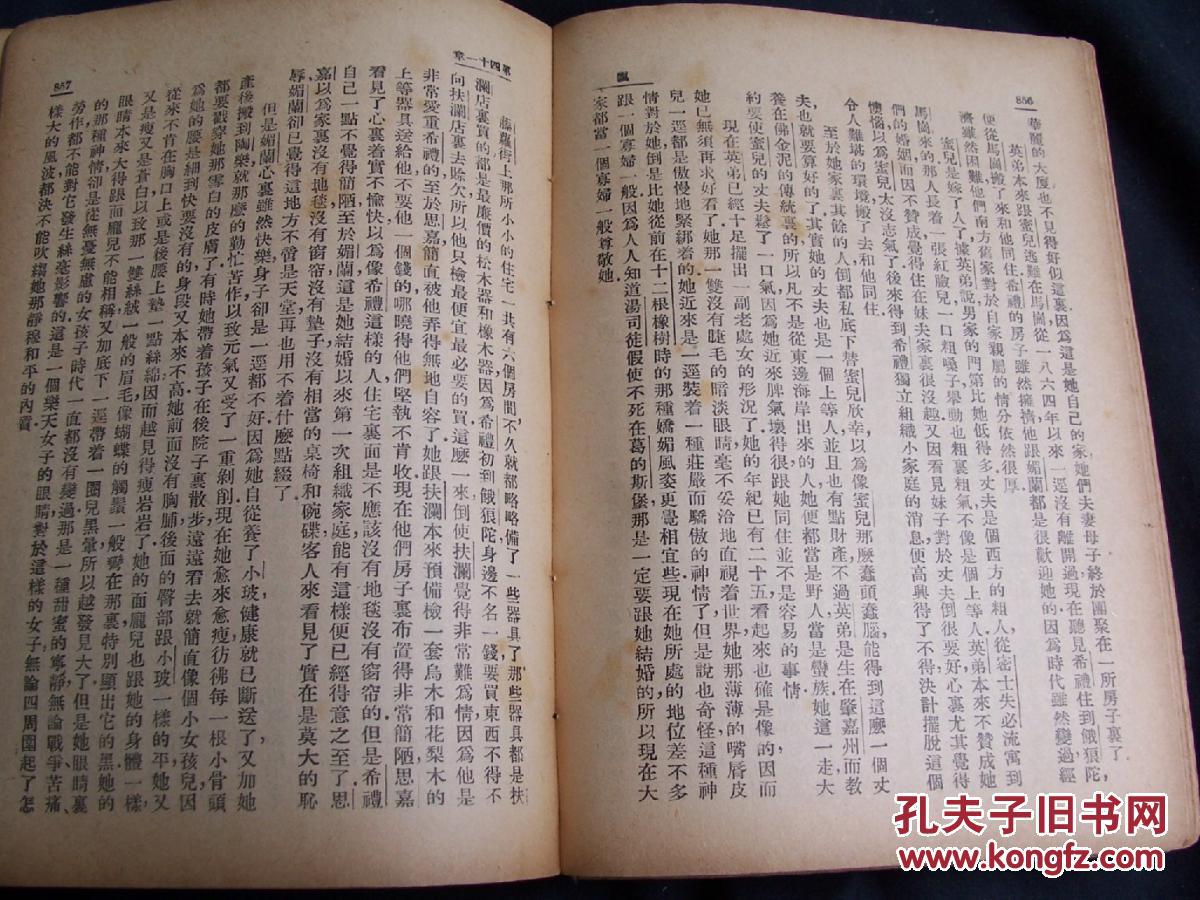 856
飄
華麗的大廈也不見得好似這裏因爲這是她自己的家她們夫妻母子終於團聚在一所房子裏了
英弟本來跟蜜兒逃難在馬崗從一八六四年以來一逕沒有離開過現在聽見希禮住到餓狼陀
便從馬崗搬了來和他同住希禮的房子雖然擁擠他跟媚蘭都是很歡迎她的因爲時代雖然變過經
濟雖然困難他們南方舊家對於自家親屬的情分依然很厚
蜜兒是嫁了人了據英弟說男家的門第比她低得多丈夫是個西方的粗人從密士失必流寓到
馬崗來的那人長着一張紅臉兒一口粗嗓子舉動也粗裏粗氣不像是個上等人英弟本來不贊成她
們的婚姻而因不贊成覺得住在妹夫家裏很沒趣又因看見妹子對於丈夫倒很要好心裏尤其覺得
懊惱以爲蜜兒太沒志氣了後來得到希禮獨立組織小家庭的消息便高興得了不得決計擺脫這個
令人難堪的環境搬了去和他同住
至於她家裏其餘的人倒都私底下替蜜兒欣幸以爲像蜜兒那麼蠢頭蠢腦能得到這麼一個丈
夫也就要算好的了其實她的丈夫也是一個上等人並且也有點財產不過英弟是生在肇嘉州而教
養在佛金泥的傳統裏的所以凡不是從東邊海岸出來的人她便都當是野人當是蠻族她這一走大
約要使蜜兒的丈夫鬆了一口氣因爲她近來脾氣壞得很跟她同住並不是容易的事情
現在英弟已經十足擺出一副老處女的形況了她的年紀已有二十五看起來也確是像的因而
她已無須再求好看了她那一雙沒有睫毛的暗淡眼睛毫不妥洽地直視着世界她那薄薄的嘴唇皮
兒一逕都是傲慢地緊綳着的她近來是一逕裝着一種莊嚴而驕傲的神情了但是說也奇怪這種神
情對於她倒是比她從前在十二根橡樹時的那種嬌媚風姿更覺相宜些現在她所處的地位差不多
跟一個寡婦一般因爲人人知道湯司徒假使不死在葛的斯堡那是一定要跟她結婚的所以現在大
家都當一個寡婦一般尊敬她
第四十一章
857
藤蘿街上那所小小的住宅一共有六個房間不久就都略略備了一些器具了那些器具都是扶
瀾店裏買的都是最廉價的松木器和橡木器因爲希禮初到餓狼陀身邊不名一錢要買東西不得不
向扶瀾店裏去賒欠所以他只檢最便宜最必要的買這麼一來倒使扶瀾覺得非常難爲情因爲他是
非常愛重希禮的至於思嘉簡直被他弄得無地自容了她跟扶瀾本來預備檢一套烏木和花梨木的
上等器具送給他不要他一個錢的哪曉得他們堅執不肯收現在他們房子裏布置得非常簡陋思嘉
看見了心裏着實不愉快以爲像希禮這樣的人住宅裏面是不應該沒有地毯沒有窗帘的但是希禮
自己一點不覺得簡陋至於媚蘭這是她結婚以來第一次組織家庭能有這樣便已經得意之至了思
嘉以爲家裏沒有地毯沒有窗帘沒有墊子沒有相當的桌椅和碗碟客人來看見了實在是莫大的恥
辱媚蘭卻已覺得這地方不啻是天堂再也用不着什麼點綴了
但是媚蘭心裏雖然快樂身子卻是一逕都不好因爲她自從養了小玻健康就已斷送了又加她
產後搬到陶樂就那麼的勤忙苦作以致元氣又受了一重剝削現在她愈來愈瘦彷彿每一根小骨頭
都要戳穿她那雪白的皮膚了有時她帶着孩子在後院子裏散步遠遠看去就簡直像個小女孩兒因
爲她的腰是細到快要沒有的身段又本來不高她前面沒有胸脯後面的臀部跟小玻一樣的平她又
從來不肯在胸口上或是後腰上墊一點絲綿因而越見得瘦岩岩了她的面龐兒也跟她的身體一樣
又是瘦又是蒼白以致那一雙絲絨一般的眉毛像蝴蝶的觸鬚一般彎在那裏特別顯出它的黑她的
眼睛本來大得跟面龐兒不能相稱又加底下一逕帶着一圈兒黑暈所以越發見大了但是她眼睛裏
的那種神情卻是從無憂無慮的女孩子時代一直都沒有變過那是一種甜蜜的寧靜無論戰爭苦痛、
勞作都不能對它發生絲毫影響的這是一個樂天女子的眼睛對於這樣的女子無論四周圍起了怎
樣大的風波都決不能吹縐她那靜穆和平的內竇
孔夫子旧书网
www.kongfz.com